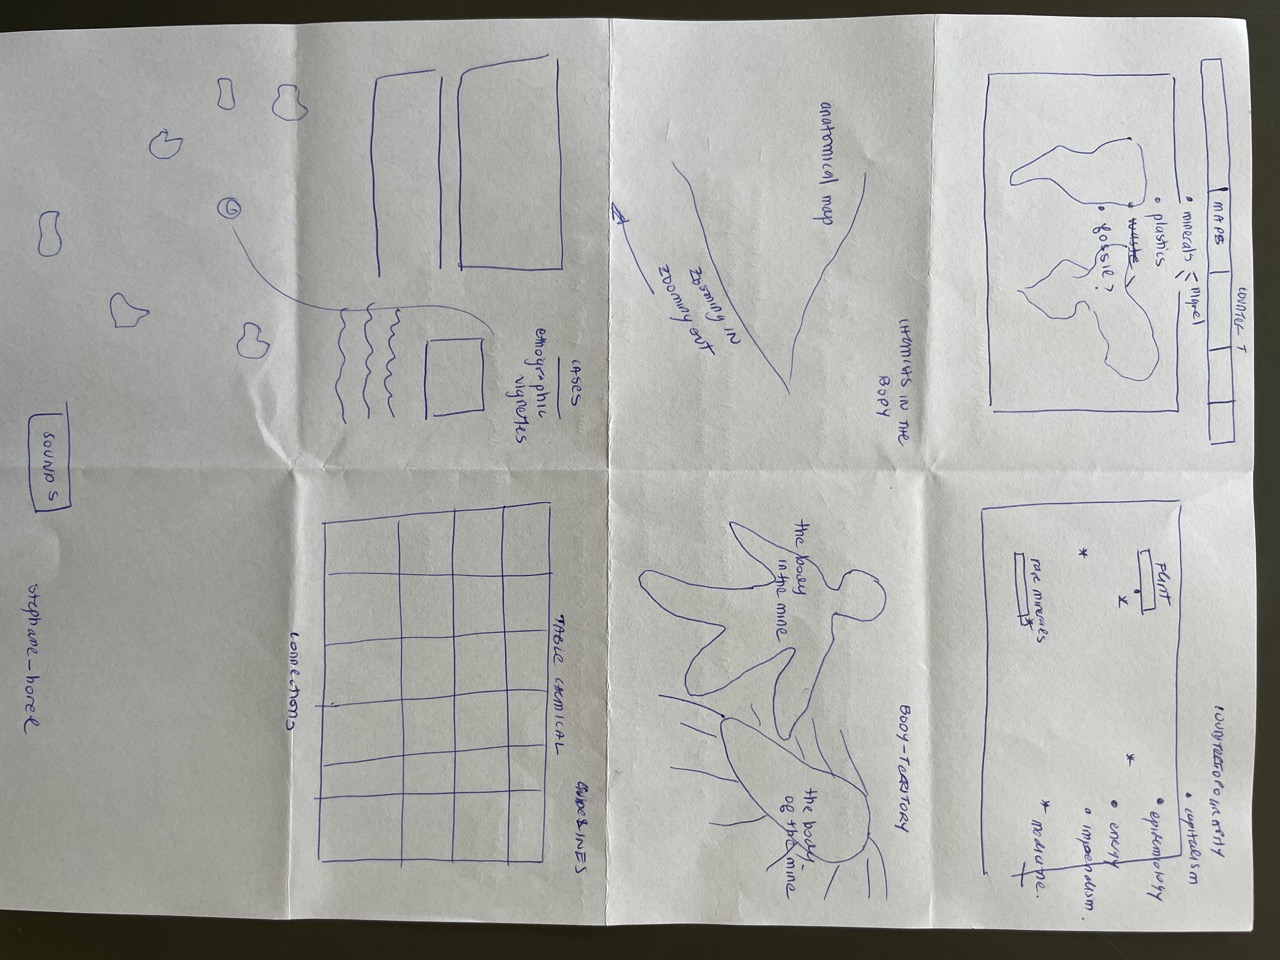 COUNTER T
MAPS
minerals
niquel
plastics
waste
fossie?
COUNTERTOPOGRAPHY
capitalism
epidemiology
energy
imperialism.
medicine.
Flint
rare minerals
CHEMICALS IN THE
BODY
anatomical map
ZOOMING IN
ZOOMING OUT
BODY-TERRITORY
the body
in the mine
the body
of the mine
CASES
etnographic
vignettes
GUIDELINES
TABLE CHEMICAL
connections
SOUNDS
stephane_horel